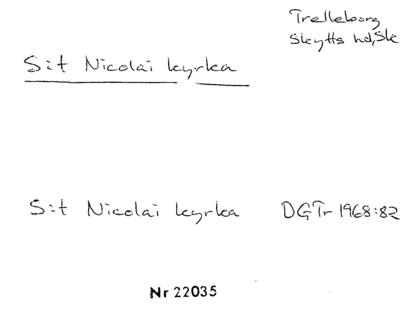 Trelleborg
Skytts hd, Sk
S:t Nicolai kyrka
S:t Nicolai kyrka DGTr 1968:82
Nr 22035